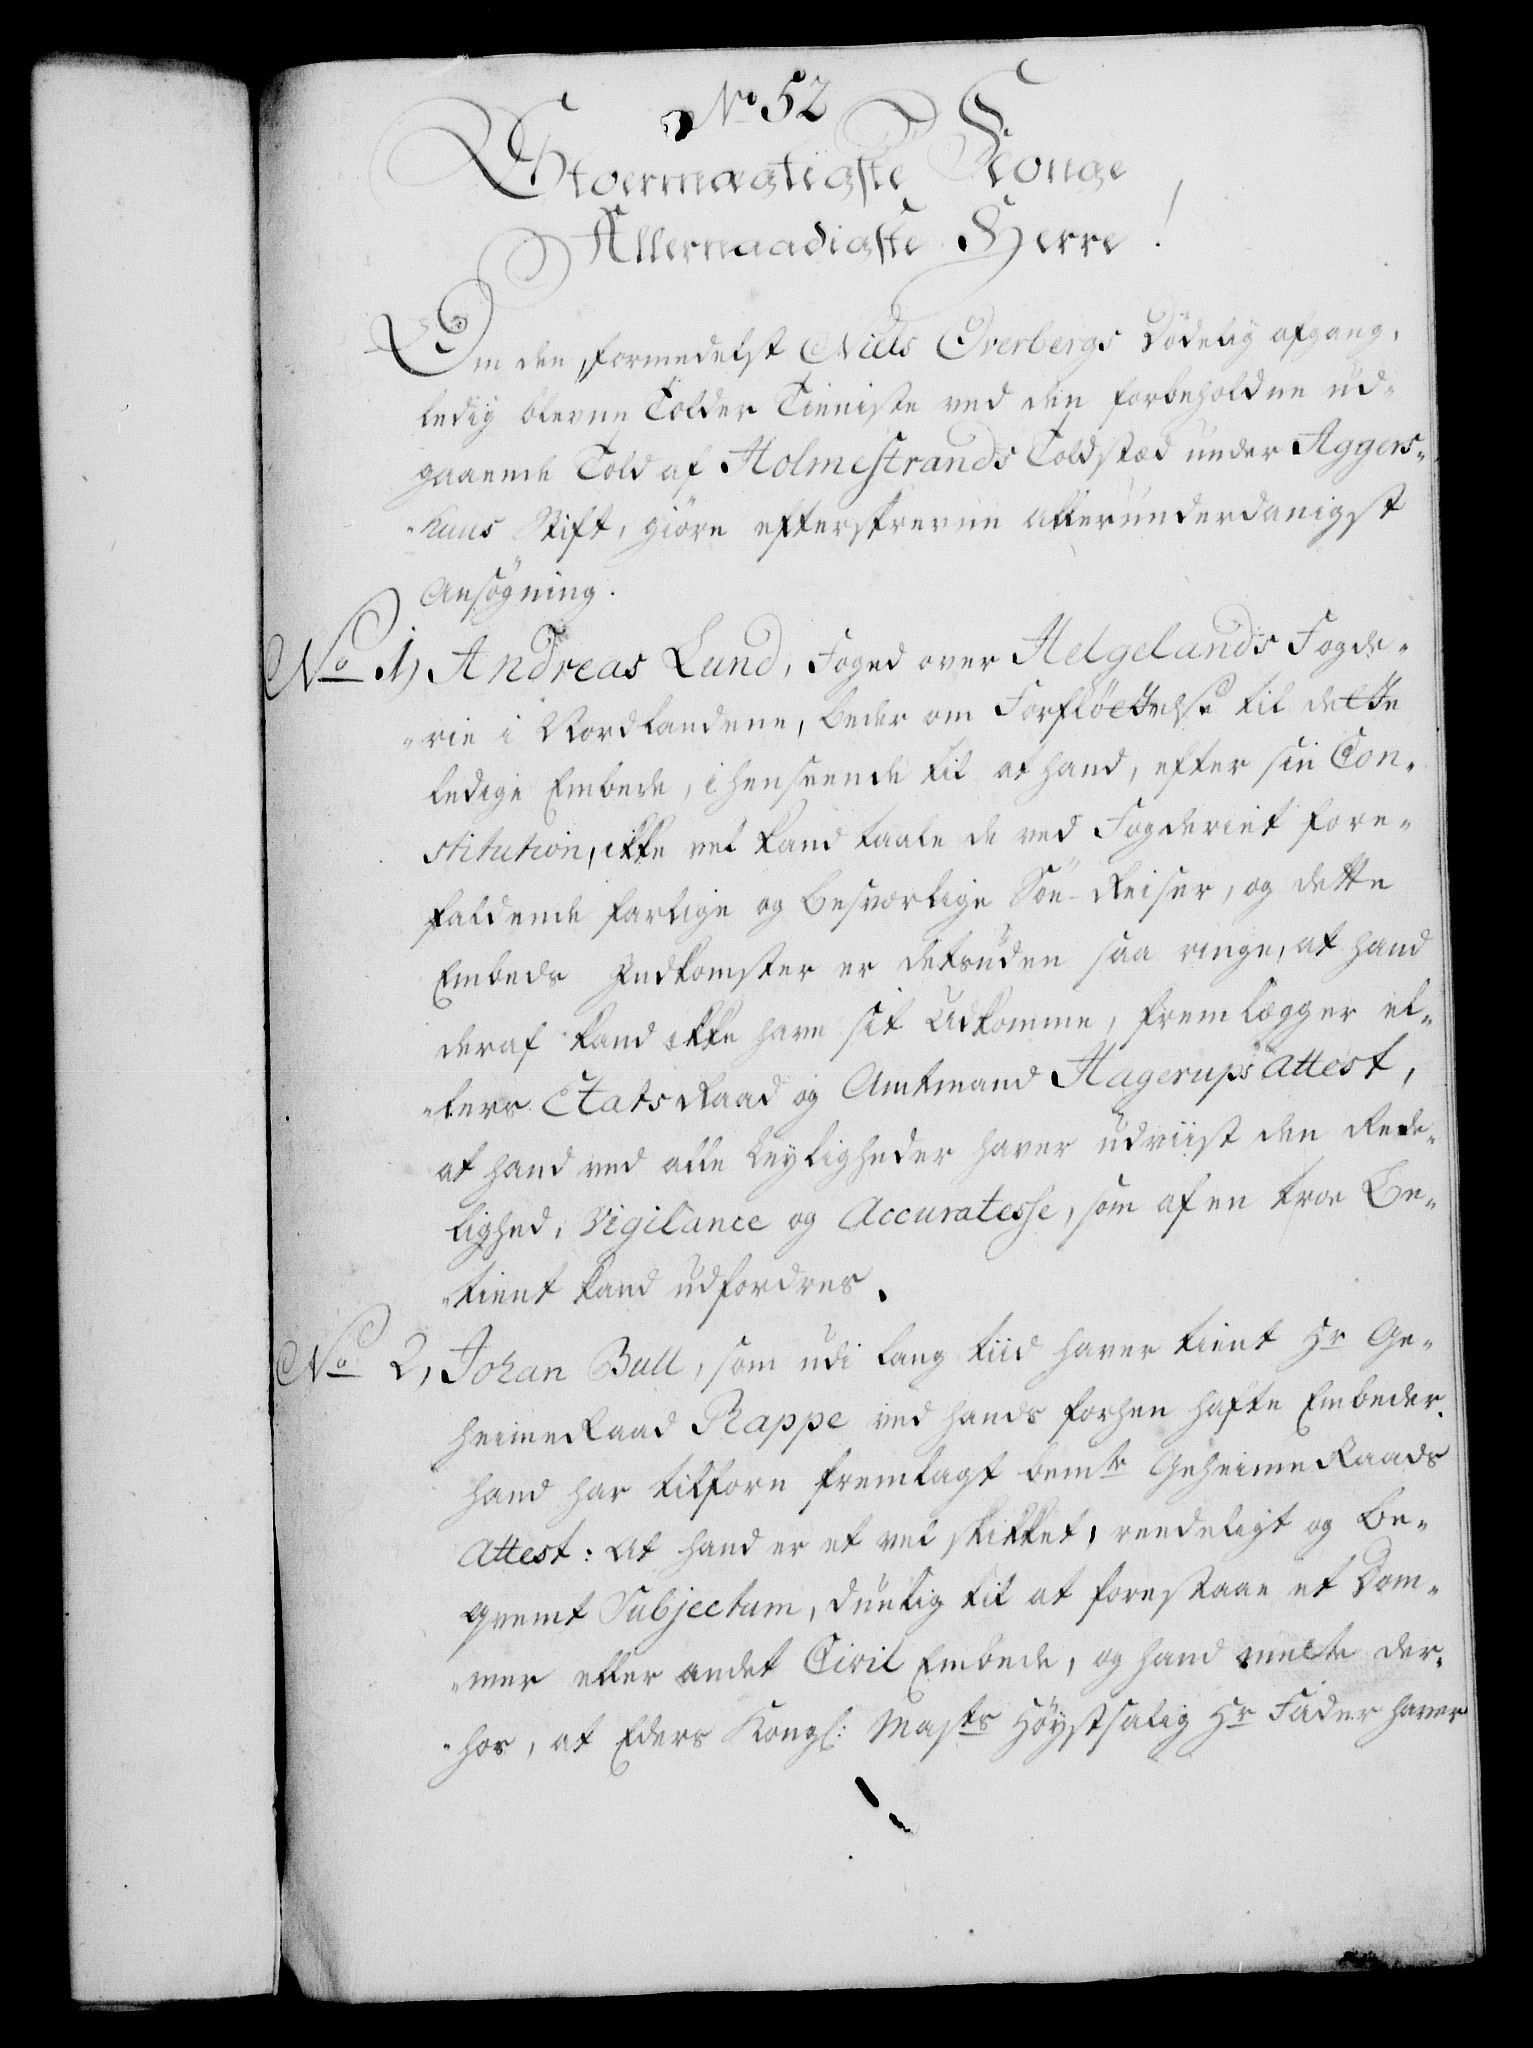 No 52
Stormægtigste Konge
Allernaadigste Herre!
Om den formedelst Niels Overbergs Dödelig afgang,
ledig blevne Tolder Tieniste ved den forbeholdne ud-
gaaende Told af Holmestrands Toldstæd under Aggers-
-huus Stift, giöre efterskrevne allerunderdanigst
Ansögning.
No 1, Andreas Lund, Foged over Helgelands Fogde-
-rie i Nordlandene, beder om Forfløttelse til dette
ledige Embede, i henseende til at hand, efter sin Con-
stitution, ikke vel kand taale de ved Fogderiet fore-
faldende farlige og besværlige Söe-Reiser, og dette
Embeds Indkomster er desuden saa ringe, at hand
deraf kand ikke have sit Udkomme, fremlægger el-
-lers Etats Raad og Amtmand Hagerups attest,
at hand ved alle Leyligheder haver udviist den Rede-
lighed, Vigilance og Accuratesse, som af en troe Be-
-tient kand udfordres.
No 2, Johan Bull, som udi lang tiid haver tient Hr Ge-
heime Raad Rappe ved hands forhen hafte Embeder.
hand har tilforn fremlagt bemte Geheime Raads
Attest: At hand er et vel skikket, reedeligt og be-
qvemt Subjectum, duelig til at forestaae et Dom-
-mer eller andet Civil Embede, og hand melte der-
-hos, at Eders Kongl: Maysts Höystsalig Hr Fader haver